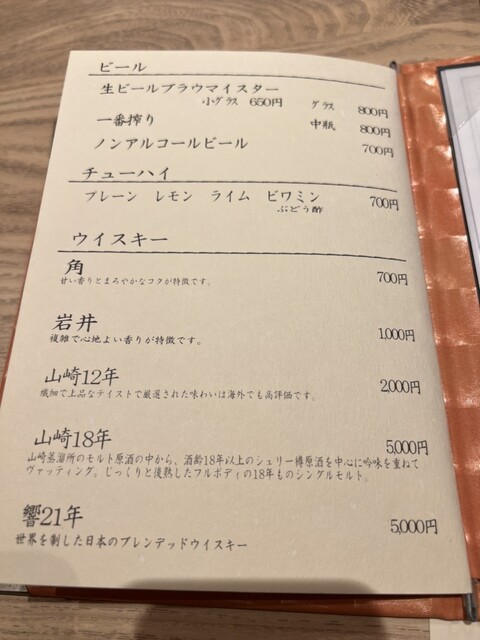 ビール
生ビールブラウマイスター
小グラス 650円 グラス 800円
一番搾り 中瓶 800円
ノンアルコールビール 700円
チューハイ
プレーン レモン ライム ビワミン 700円
ぶどう酢
ウイスキー
角 700円
甘い香りとまろやかなコクが特徴です。
岩井 1,000円
複雑で心地よい香りが特徴です。
山崎12年 2,000円
繊細で上品なテイストで厳選された味わいは海外でも高評価です。
山崎18年 5,000円
山崎蒸溜所のモルト原酒の中から、酒齢18年以上のシェリー樽原酒を中心に吟味を重ねて
ヴァッティング。じっくりと後熟したフルボディの18年ものシングルモルト。
響21年 5,000円
世界を制した日本のブレンデッドウイスキー